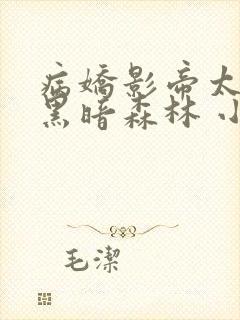 病嬌影帝太
黑暗森林 小
毛潔